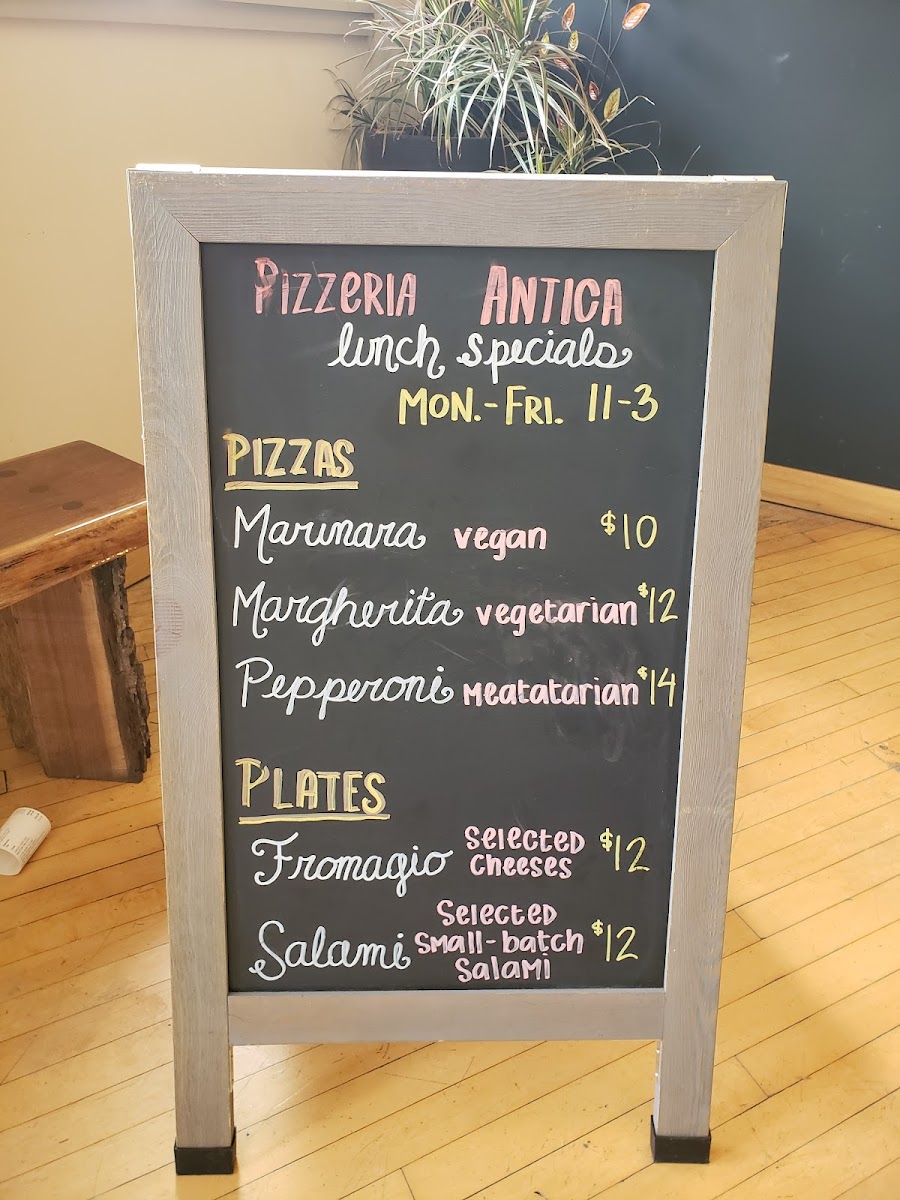 PIZZERIA ANTICA
lunch specials
MON.-FRI. 11-3
PIZZAS
Marinara vegan $10
Margherita vegetarian $12
Pepperoni Meatatarian $14
PLATES
Fromagio Selected cheeses $12
Salami Selected small-batch salami $12